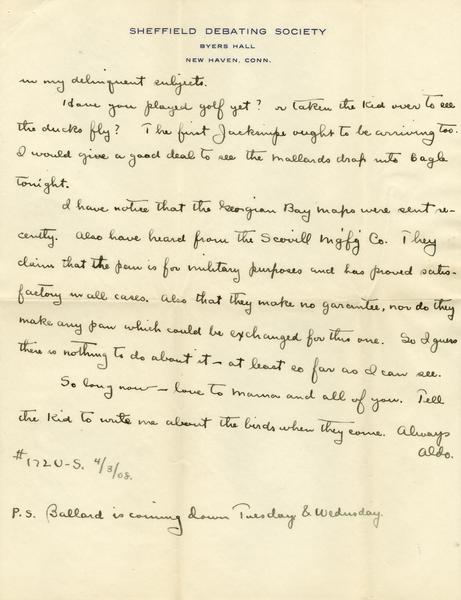 SHEFFIELD DEBATING SOCIETY
BYERS HALL
NEW HAVEN, CONN.
in my delinquent subjects.
Have you played golf yet? or taken the Kid over to see
the ducks fly? The first Jacksnipe ought to be arriving too.
I would give a good deal to see the mallards drop into Eagle
tonight.
I have notice that the Georgian Bay maps were sent re-
cently. Also have heard from the Scovill M'g'f'g Co. They
claim that the pan is for military purposes and has proved satis-
factory in all cases. Also that they make no garantee, nor do they
make any pan which could be exchanged for this one. So I guess
there is nothing to do about it - at least so far as I can see.
So long now - love to Mama and all of you. Tell
the Kid to write me about the birds when they come. Always
Aldo.
#172 U-S. 4/3/08.
P.S. Ballard is coming down Tuesday & Wednusday.